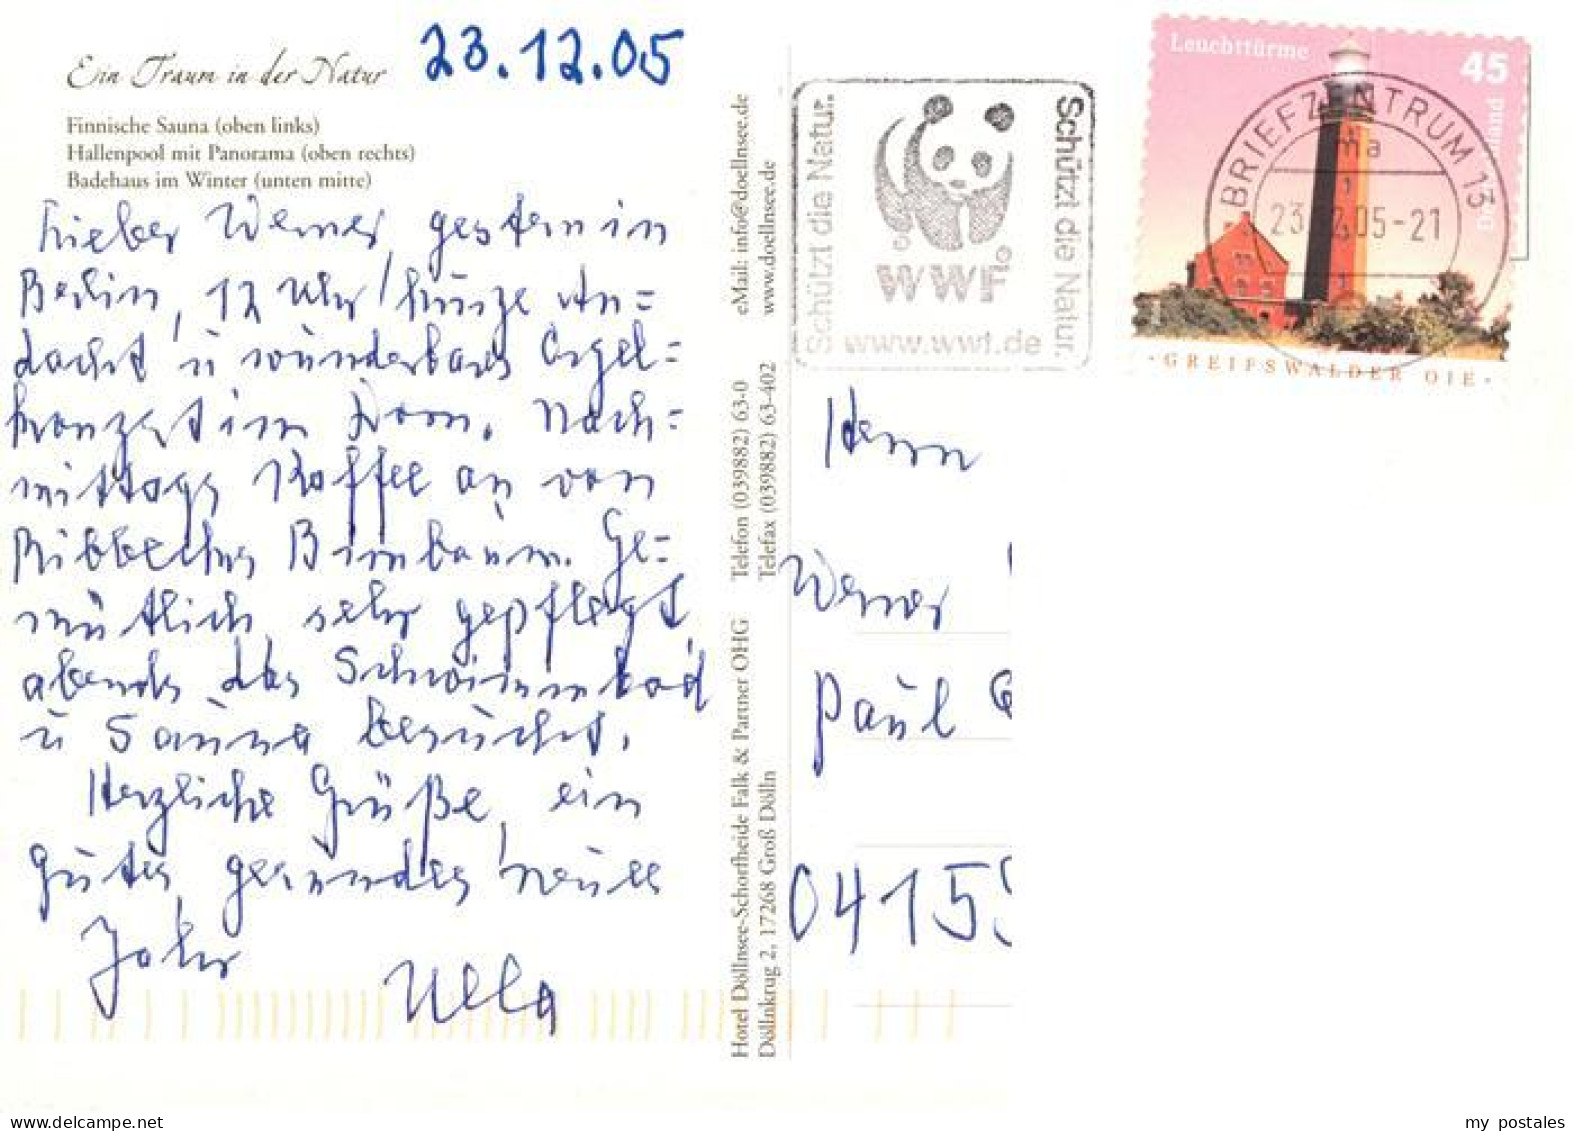 Ein Traum in der Natur
23.12.05
Finnische Sauna (oben links)
Hallenpool mit Panorama (oben rechts)
Badehaus im Winter (unten mitte)
Lieber Werner, gestern in
Berlin, 12 Uhr kurze An=
dacht u wunderbares Orgel=
konzert im Dom. Nach=
mittags Kaffee an von
Ribbecks Birnbaum. Ge=
mütlich, sehr gepflegt,
abends das Schwimmbad
u Sauna besucht.
Herzliche Grüße, ein
gutes gesundes neues
Jahr Ulla
eMail: info@doellnsee.de
www.doellnsee.de
Telefon (039882) 63-0
Telefax (039882) 63-402
Hotel Döllnsee-Schorfheide Falk & Partner OHG
Döllnkrug 2, 17268 Groß Dölln
Schützt die Natur.
WWF
www.wwf.de
Schützt die Natur.
Leuchttürme
45
Deutschland
BRIEFZENTRUM 13
ma
23.12.05-21
GREIFSWALDER OIE
Herrn
Werner
Paul
0415
my postales